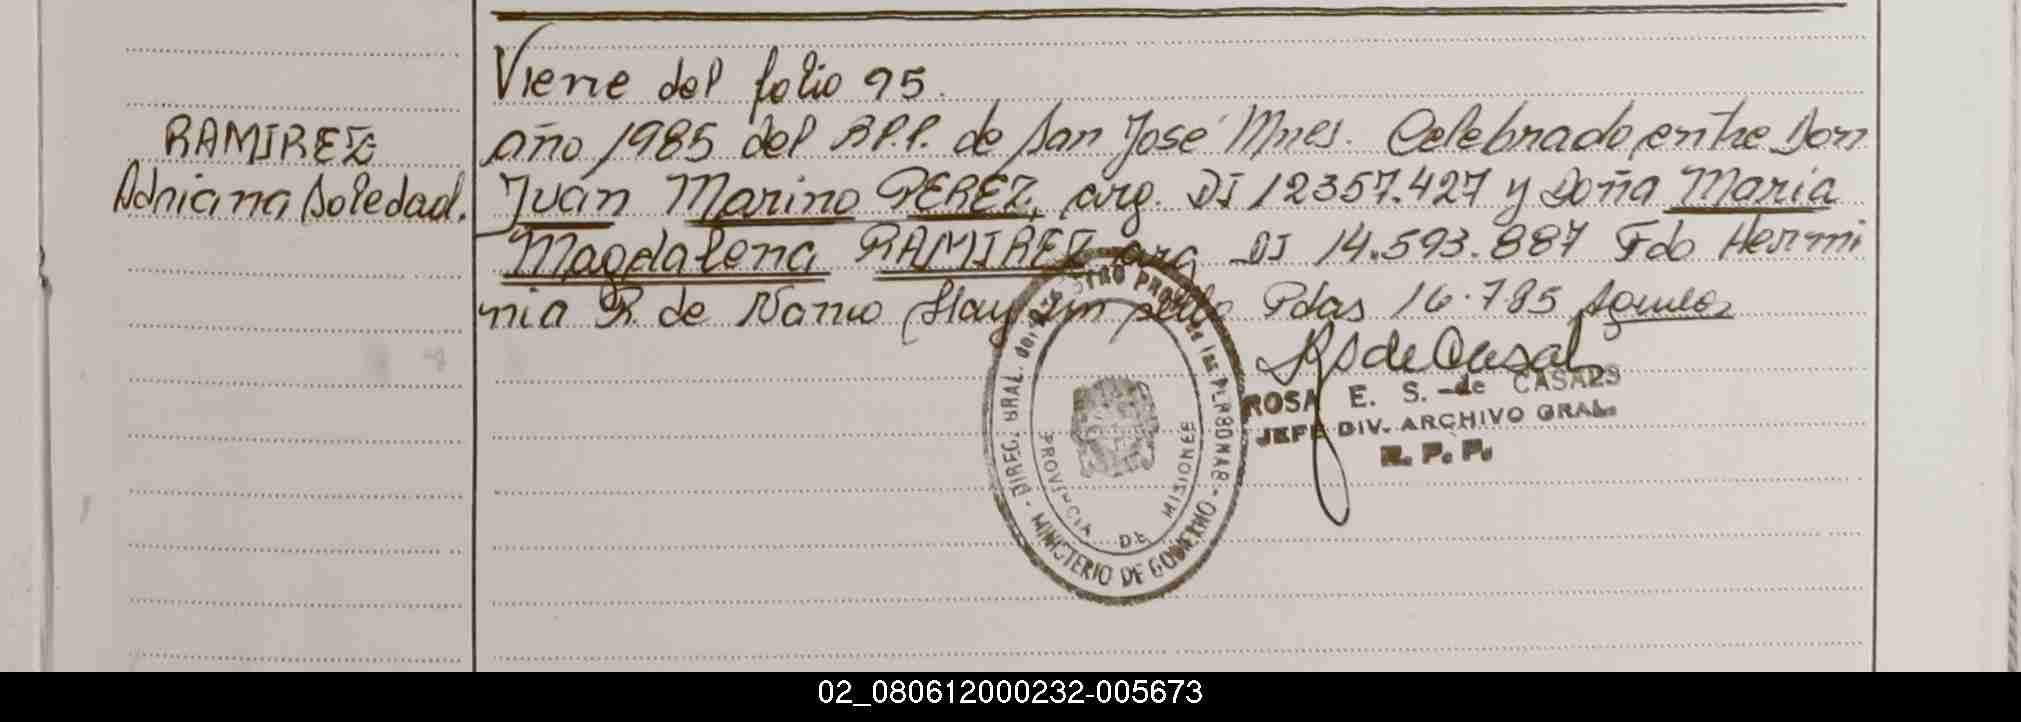 Viene del folio 95.
RAMIREZ
Adriana Soledad.
año 1985 del R.P.P. de San José Mnes. Celebrado entre Don
Juan Marino PEREZ, arg. DI 12357.427 y Doña María
Magdalena RAMIREZ arg DI 14.593.887 Fdo Hermi
nia R. de Hay un sello Pdas 16.7.85
ROSA E. S. de CASALS
JEFE DIV. ARCHIVO GRAL.
R. P. P.
DIREC. GRAL. del REGISTRO PROV. de las PERSONAS - MINISTERIO DE GOBIERNO -
PROVINCIA DE MISIONES
02_080612000232-005673